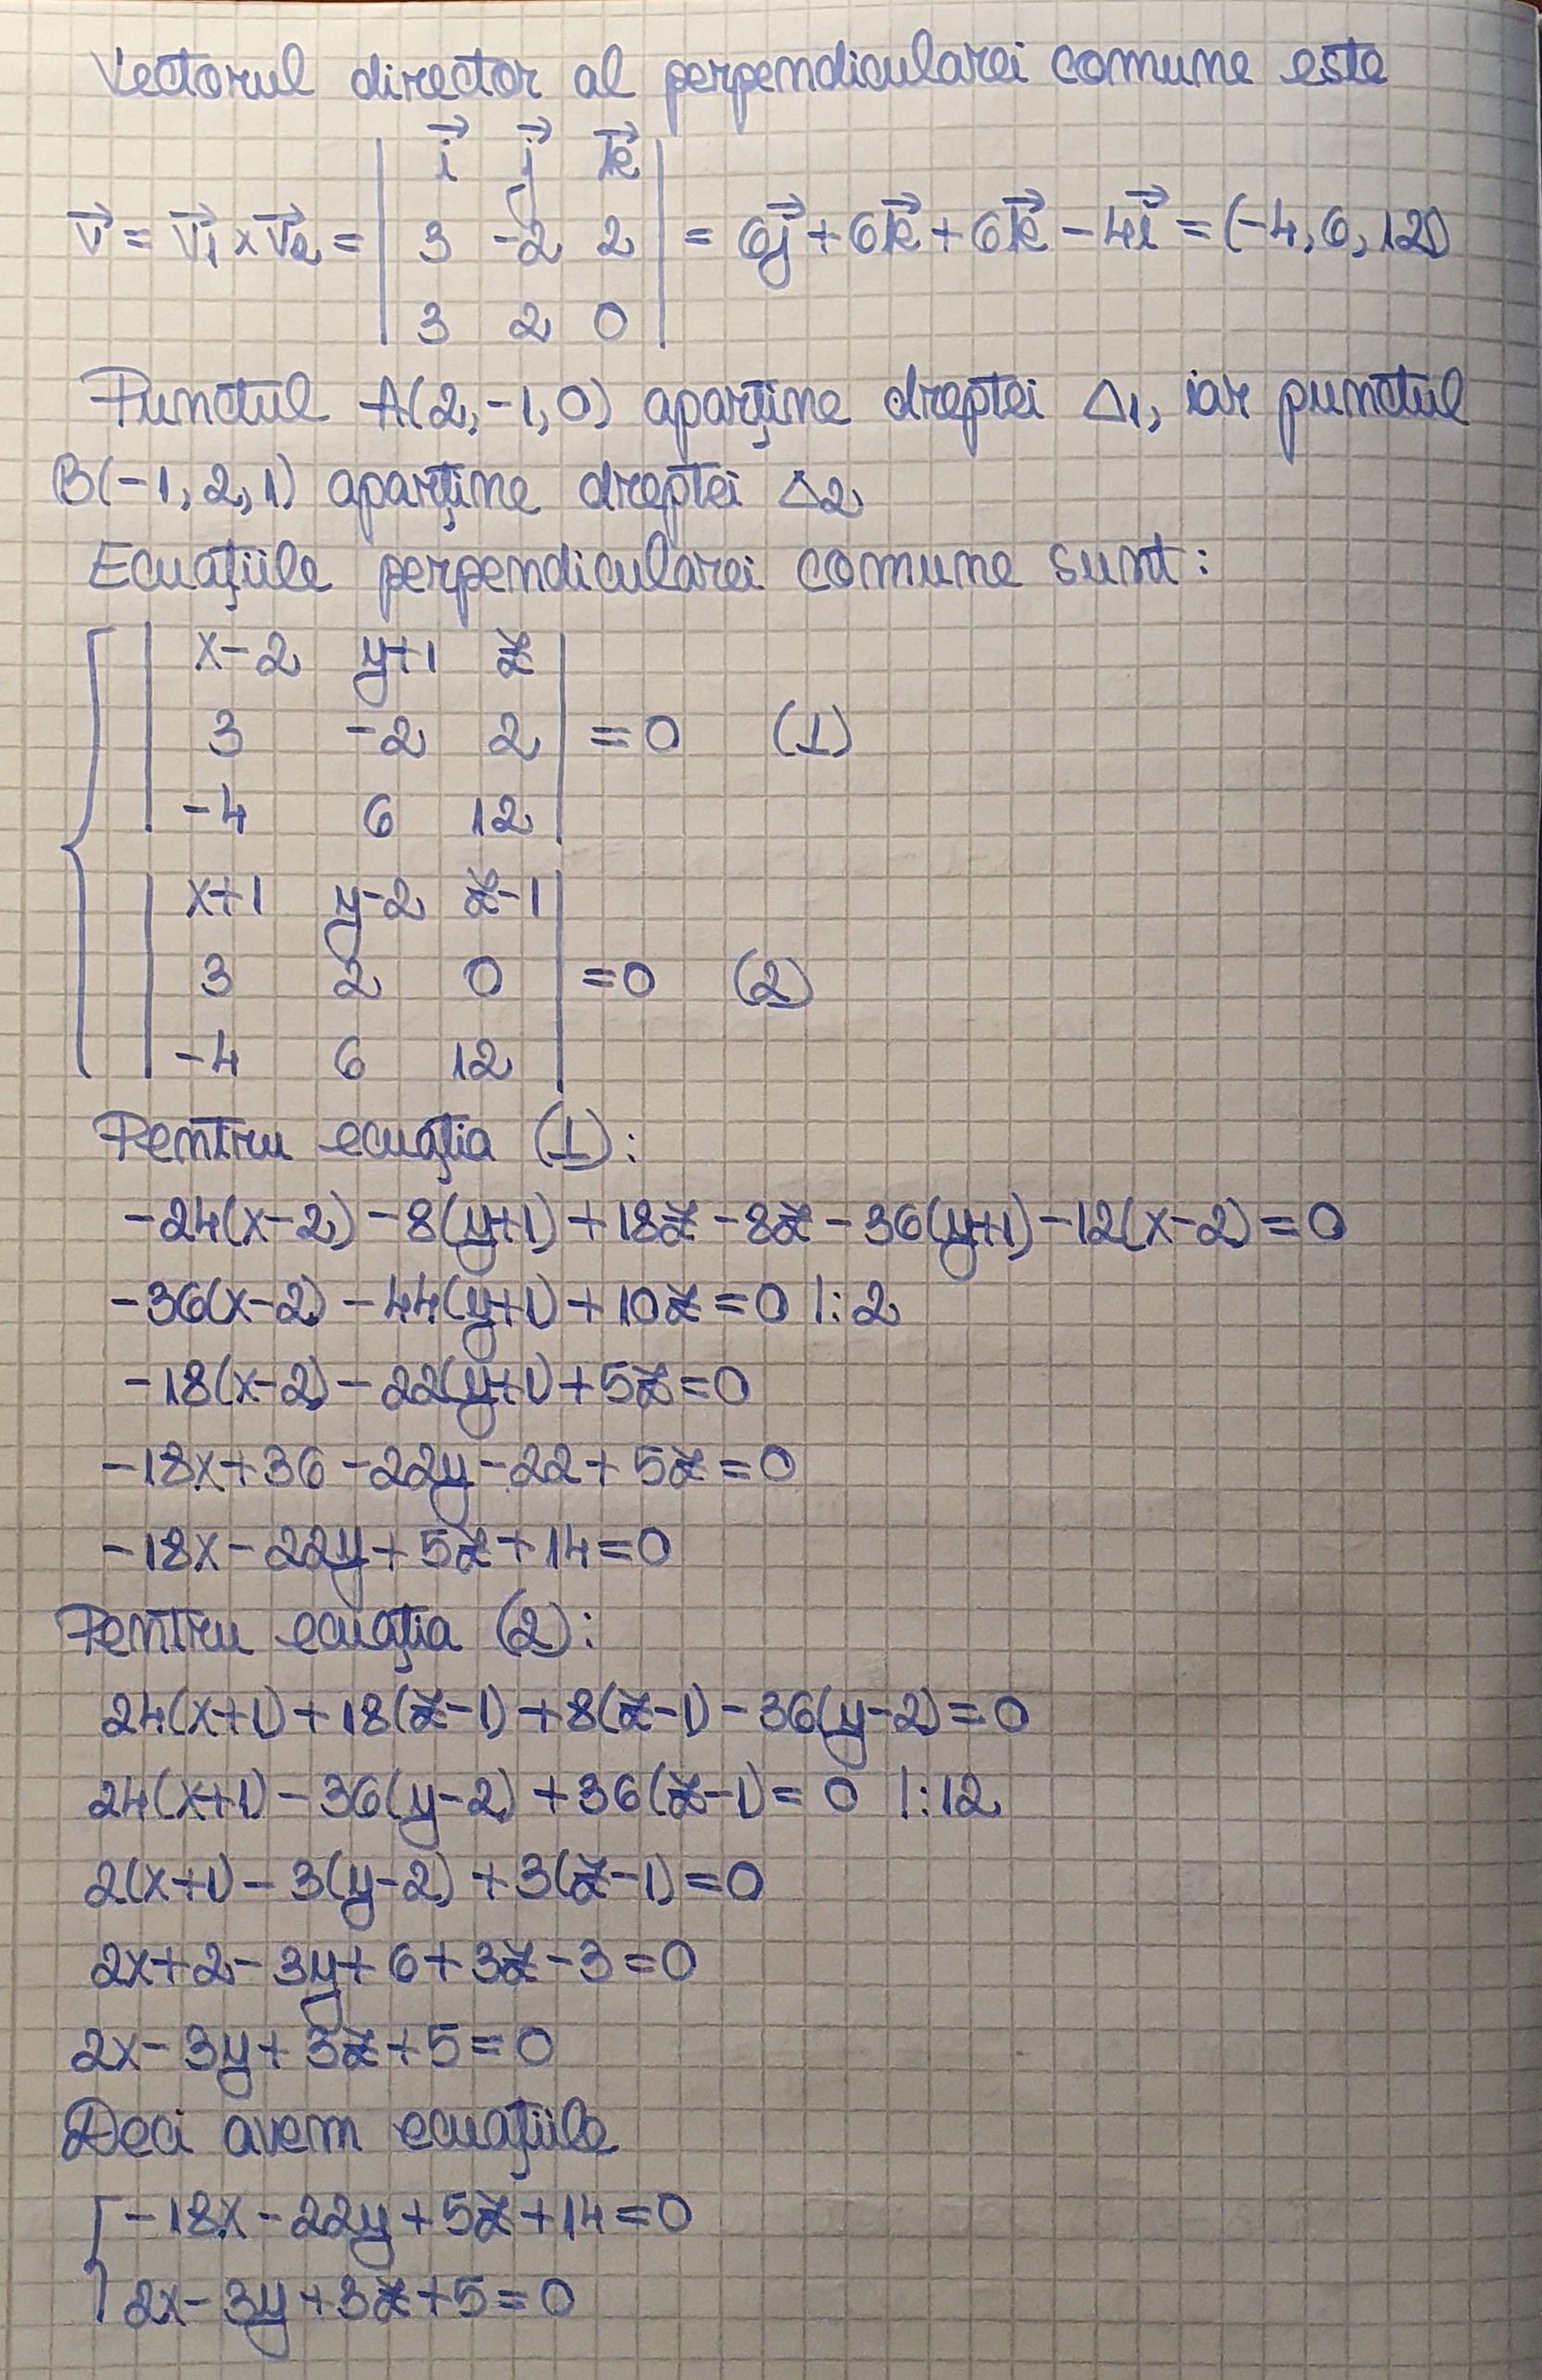 Vectorul director al perpendicularei comune este
v⃗ = v⃗₁ × v⃗₂ = | i⃗ j⃗ k⃗ |
| 3 -2 2 | = 6j⃗ + 6k⃗ + 6k⃗ - 4i⃗ = (-4, 6, 12)
| 3 2 0 |
Punctul A(2, -1, 0) aparține dreptei Δ1, iar punctul
B(-1, 2, 1) aparține dreptei Δ2
Ecuațiile perpendicularei comune sunt:
| x-2 y+1 z |
| 3 -2 2 | = 0 (1)
| -4 6 12 |
| x+1 y-2 z-1 |
| 3 2 0 | = 0 (2)
| -4 6 12 |
Pentru ecuația (1):
-24(x-2) - 8(y+1) + 18z - 8z - 36(y+1) - 12(x-2) = 0
-36(x-2) - 44(y+1) + 10z = 0 |:2
-18(x-2) - 22(y+1) + 5z = 0
-18x + 36 - 22y - 22 + 5z = 0
-18x - 22y + 5z + 14 = 0
Pentru ecuația (2):
24(x+1) + 18(z-1) + 8(z-1) - 36(y-2) = 0
24(x+1) - 36(y-2) + 36(z-1) = 0 |:12
2(x+1) - 3(y-2) + 3(z-1) = 0
2x + 2 - 3y + 6 + 3z - 3 = 0
2x - 3y + 3z + 5 = 0
Deci avem ecuațiile
{ -18x - 22y + 5z + 14 = 0
2x - 3y + 3z + 5 = 0